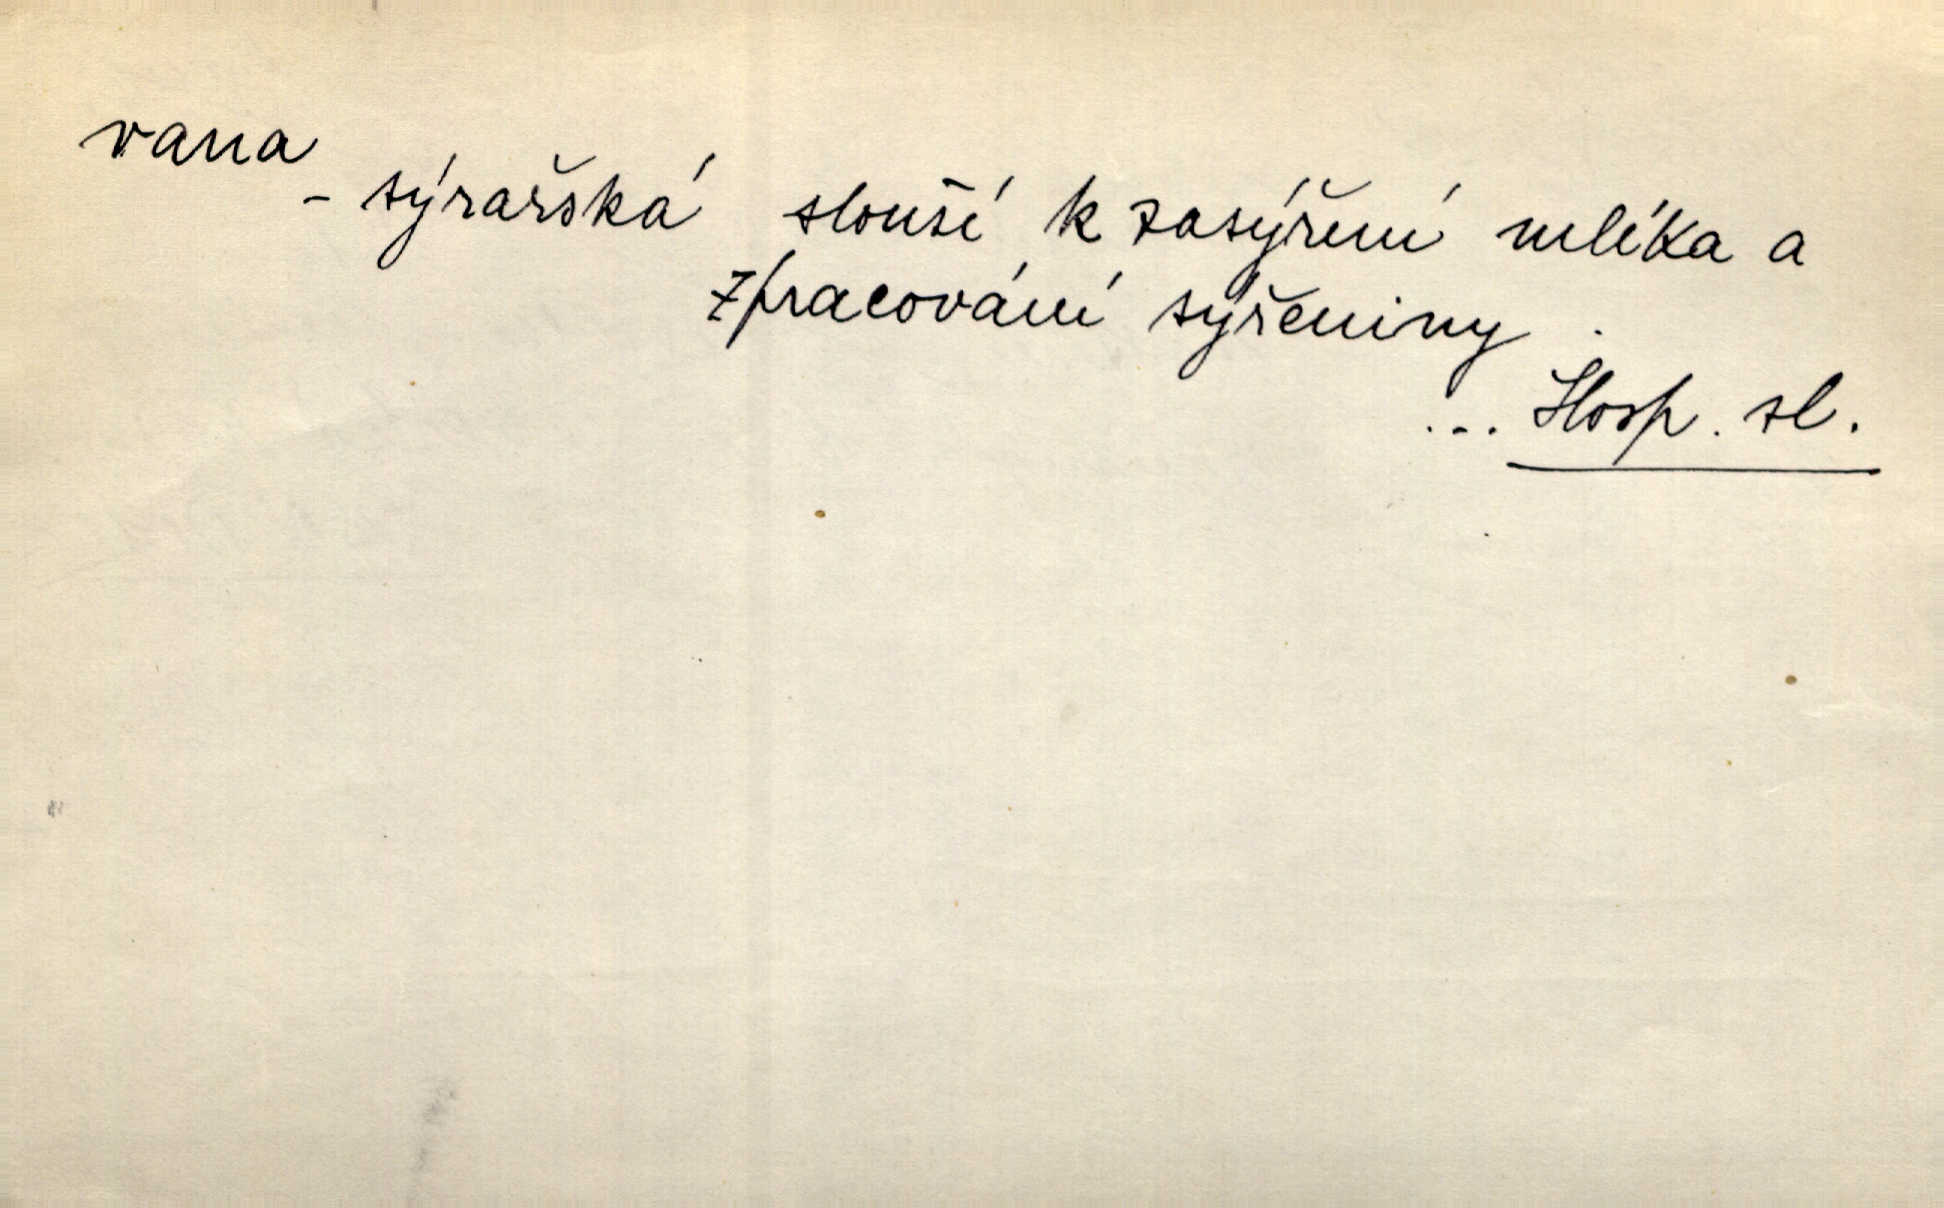 vana
- sýrařská slouží k zasýření mléka a
zpracování sýřeniny .
... Hosp. sl.